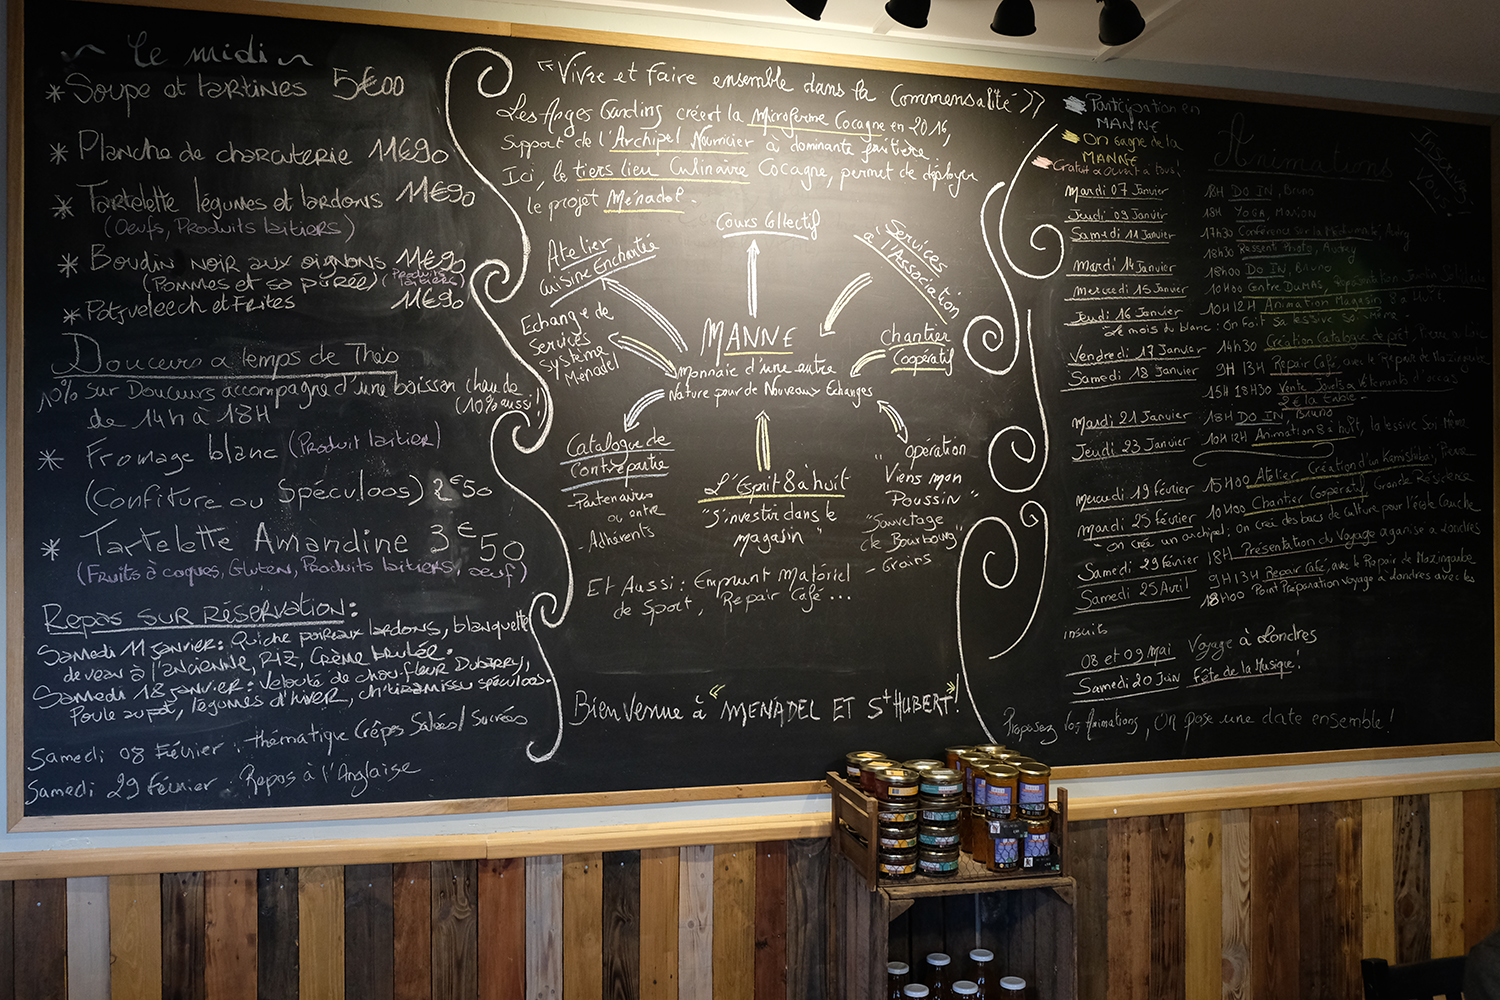 Le midi
* Soupe et tartines 5€00
* Planche de charcuterie 11€90
* Tartelette légumes et lardons 11€90
(Oeufs, Produits laitiers)
* Boudin noir aux oignons 11€90
(Pommes et sa purée) (Produits laitiers)
* Potjveleech et Frites 11€90
Douceurs a temps de Thés
10% sur Douceurs accompagné d'une boisson chaude
(10% aussi!)
de 14h à 18H
* Fromage blanc (Produit laitier)
(Confiture ou Spéculoos) 2€50
* Tartelette Amandine 3€50
(Fruits à coques, Gluten, Produits laitiers, oeuf)
Repas sur réservation:
Samedi 11 janvier: Quiche poireaux lardons, blanquette
de veau à l'ancienne, Riz, Crème brulée.
Samedi 18 janvier: Velouté de chou-fleur Dubarry,
Poule au pot, légumes d'hiver, ch'tiramissu spéculoos.
Samedi 08 Février: thématique Crêpes Salées/Sucrées
Samedi 29 février: Repas à l'Anglaise
"Vivre et faire ensemble dans la Commensalité"
Les Anges Gardins créent la Microferme Cocagne en 2016,
support de l'Archipel Nourricier à dominante fruitière.
Ici, le tiers lieu Culinaire Cocagne, permet de déployer
le projet Ménadel.
Cours Collectif
Atelier
Cuisine Enchantée
"Services
à l'Association
Echange de
Services
système
Ménadel
MANNE
Monnaie d'une autre
Nature pour de Nouveaux Echanges
Chantier
Coopératif
Catalogue de
Contrepartie
- Partenaires
ou entre
- Adhérents
L'Esprit 8 à huit
"S'investir dans le
magasin"
opération
"Viens mon
Poussin"
"Sauvetage
de Bourbourg"
- Grains
Et Aussi: Emprunt Matériel
de Sport, Repair Café...
Bienvenue à "MENADEL ET St HUBERT"!
Participation en
MANNE
On gagne de la
MANNE
Gratuit & ouvert à tous!
Animations
Inscrivez
Vous!
Mardi 07 Janvier 18H DO IN, Bruno
Jeudi 09 Janvier 18H YOGA, Marion
Samedi 11 Janvier 17h30 Conférence Sur la Médiumnité, Audrey
18h30 Ressenti Photo, Audrey
Mardi 14 Janvier 18h00 DO IN, Bruno
Mercredi 15 Janvier 10H00 Centre Dumas, Représentation Jardin Solidaire
Jeudi 16 Janvier 10H12H Animation Magasin 8 à Huit.
Le mois du blanc: On fait sa lessive soi-même
Vendredi 17 Janvier 14h30 Création Catalogue de prêt,
Samedi 18 Janvier 9H 13H Repair Café, avec le Repair de Mazingarbe
15H 18H30 Vente Jouets & Vêtements d'occas
2€ la table
Mardi 21 Janvier 18H DO IN, Bruno
Jeudi 23 Janvier 10H 12H Animation 8 à huit, la lessive Soi-Même
Mercredi 19 Février 15H00 Atelier Création d'un Kamishibaï, Pierre
Mardi 25 février 10H00 Chantier Coopératif Grande Résidence
- On crée un archipel: on crée des bacs de culture pour l'école Cauche
Samedi 29 février 18H Présentation du Voyage organisé à Londres
Samedi 25 Avril 9H13H Repair Café, avec le Repair de Mazingarbe
18H00 Point Préparation voyage à Londres avec les
inscrits
08 et 09 Mai Voyage à Londres
Samedi 20 Juin Fête de la Musique!
Proposez vos Animations, On pose une date ensemble!